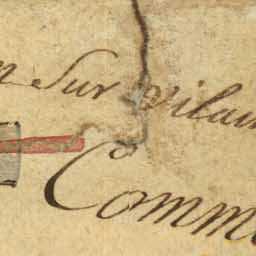 n Sur Vilain
Comm